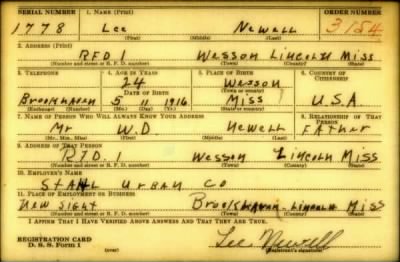 SERIAL NUMBER 1. NAME (Print) ORDER NUMBER
1778 Lee Newell 3154
(First) (Middle) (Last)
2. ADDRESS (Print)
RFD 1 Wesson Lincoln Miss
(Number and street or R. F. D. number) (Town) (County) (State)
3. TELEPHONE 4. AGE IN YEARS 5. PLACE OF BIRTH 6. COUNTRY OF CITIZENSHIP
24 Wesson
DATE OF BIRTH (Town or county)
Brookhaven 5 11 1916 Miss U.S.A
(Exchange) (Number) (Mo.) (Day) (Yr.) (State or country)
7. NAME OF PERSON WHO WILL ALWAYS KNOW YOUR ADDRESS 8. RELATIONSHIP OF THAT PERSON
Mr W.D Newell Father
(Mr., Mrs., Miss) (First) (Middle) (Last)
9. ADDRESS OF THAT PERSON
RFD. 1 Wesson Lincoln Miss
(Number and street or R. F. D. number) (Town) (County) (State)
10. EMPLOYER'S NAME
Stahl Urban Co
11. PLACE OF EMPLOYMENT OR BUSINESS
New Sight Brookhaven Lincoln Miss
(Number and street or R. F. D. number) (Town) (County) (State)
I AFFIRM THAT I HAVE VERIFIED ABOVE ANSWERS AND THAT THEY ARE TRUE.
REGISTRATION CARD
D. S. S. Form 1 Lee Newell
(Registrant's signature)